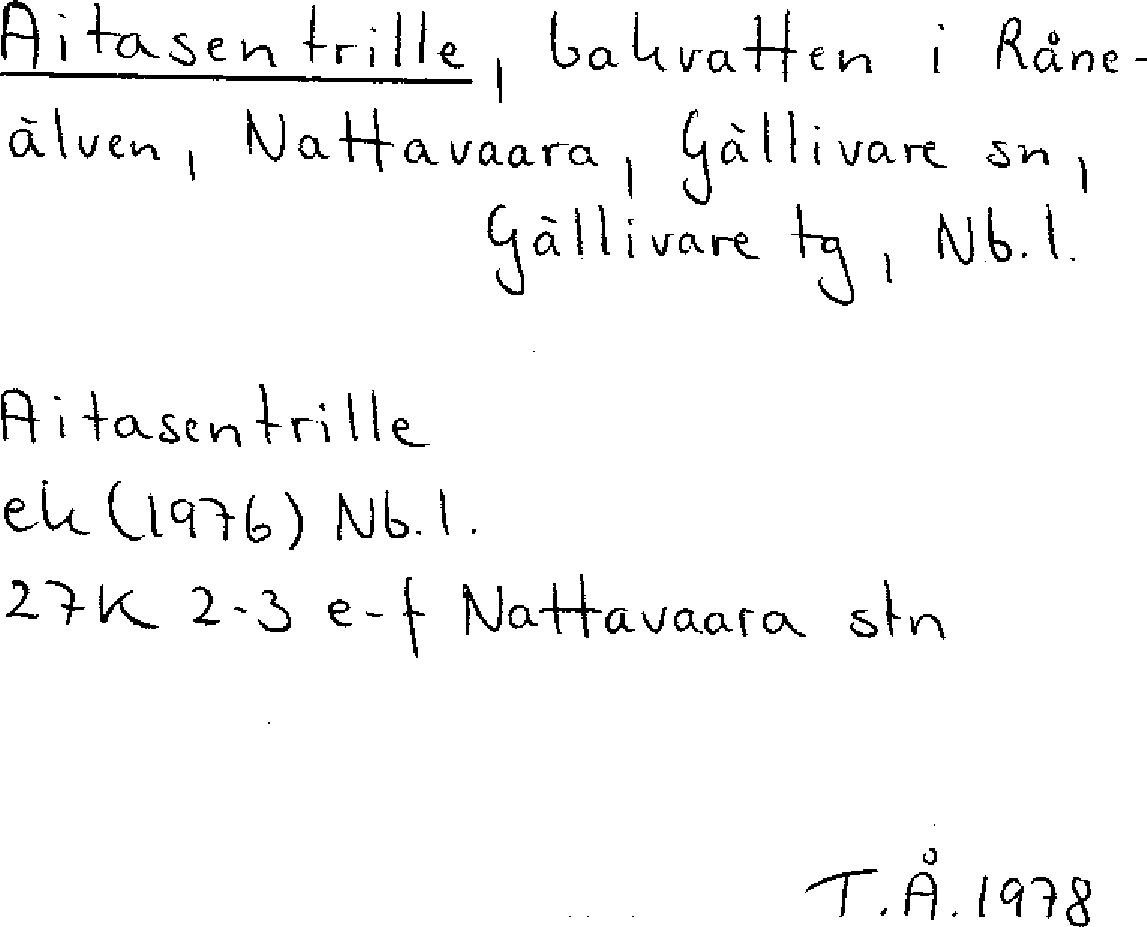 Aitasentrille, bakvatten i Råne-
älven, Nattavaara, Gällivare sn,
Gällivare tg, Nb.l.
Aitasentrille
ek (1976) Nb.l.
27K 2-3 e-f Nattavaara stn
T.Å. 1978